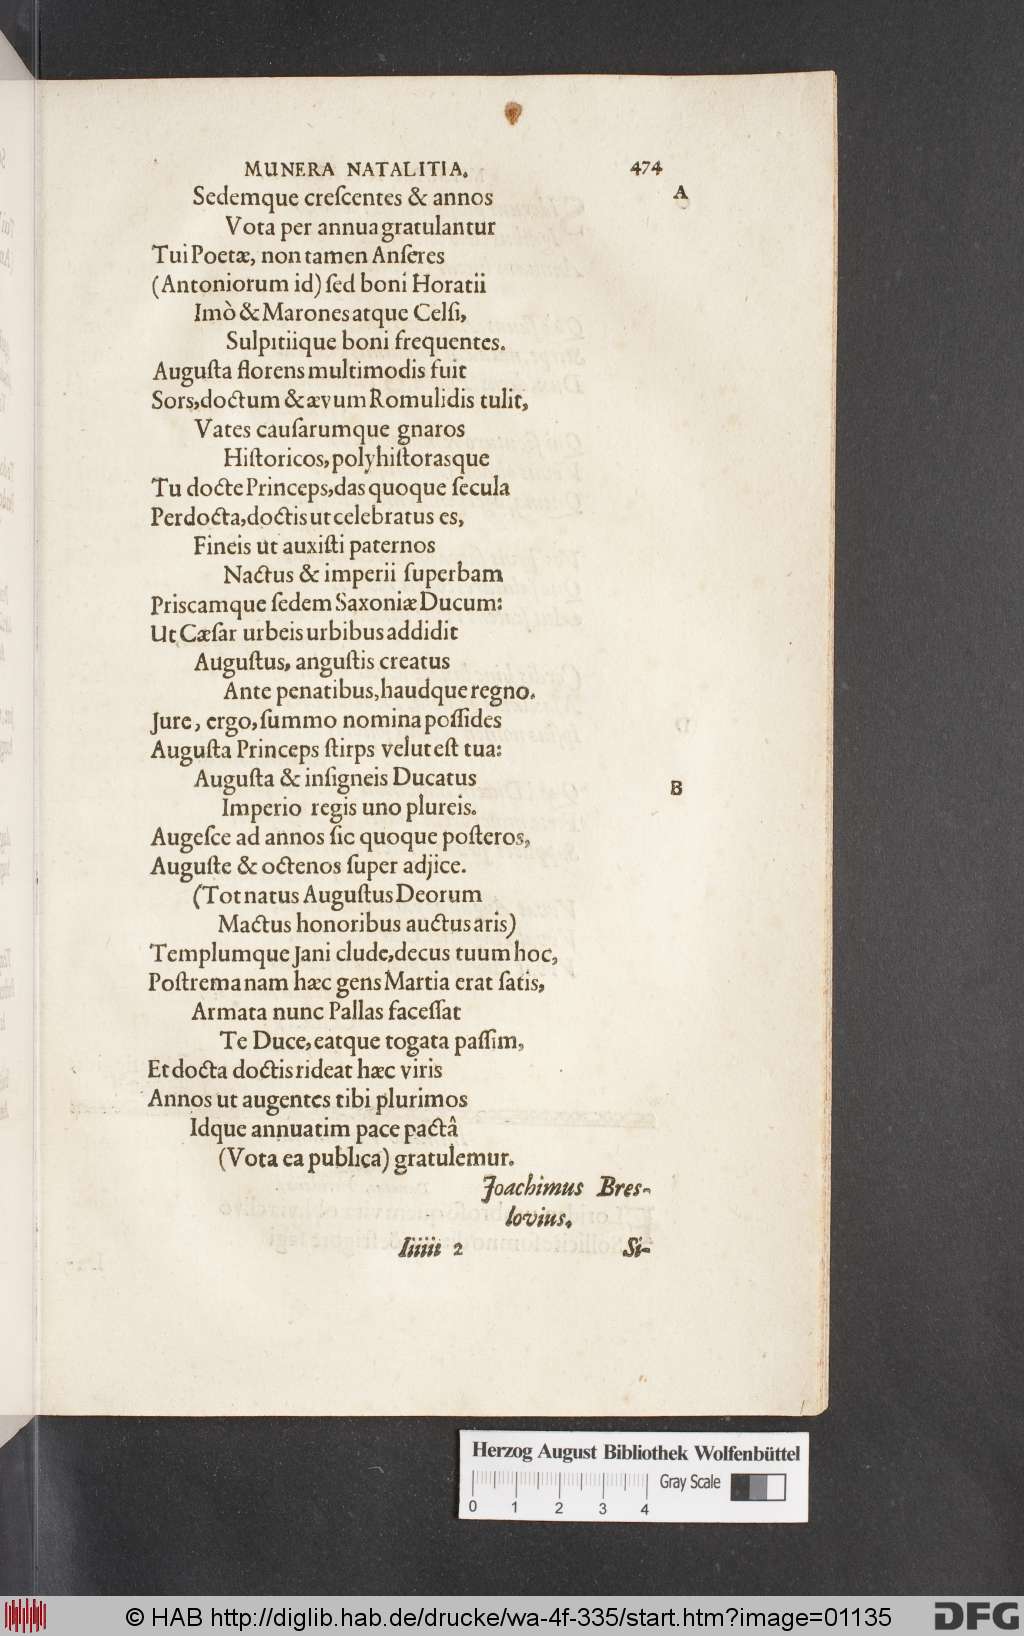 MUNERA NATALITIA. 474
Sedemque creſcentes & annos A
Vota per annua gratulantur
Tui Poetæ, non tamen Anſeres
(Antoniorum id) ſed boni Horatii
Imò & Marones atque Celſi,
Sulpitiique boni frequentes.
Auguſta florens multimodis fuit
Sors, doctum & ævum Romulidis tulit,
Vates cauſarumque gnaros
Hiſtoricos, polyhiſtorasque
Tu docte Princeps, das quoque ſecula
Perdocta, doctis ut celebratus es,
Fineis ut auxiſti paternos
Nactus & imperii ſuperbam
Priscamque ſedem Saxoniæ Ducum:
Ut Cæſar urbeis urbibus addidit
Auguſtus, anguſtis creatus
Ante penatibus, haudque regno.
Jure, ergo, ſummo nomina poſſides
Auguſta Princeps ſtirps velut eſt tua:
Auguſta & inſigneis Ducatus B
Imperio regis uno plureis.
Augeſce ad annos ſic quoque poſteros,
Auguſte & octenos ſuper adjice.
(Tot natus Auguſtus Deorum
Mactus honoribus auctus aris)
Templumque Jani clude, decus tuum hoc,
Poſtrema nam hæc gens Martia erat ſatis,
Armata nunc Pallas faceſſat
Te Duce, eatque togata paſſim,
Et docta doctis rideat hæc viris
Annos ut augentes tibi plurimos
Idque annuatim pace pactâ
(Vota ea publica) gratulemur.
Joachimus Bres-
lovius.
Iiiiii 2 Si-
Herzog August Bibliothek Wolfenbüttel
Gray Scale
0 1 2 3 4
© HAB http://diglib.hab.de/drucke/wa-4f-335/start.htm?image=01135 DFG